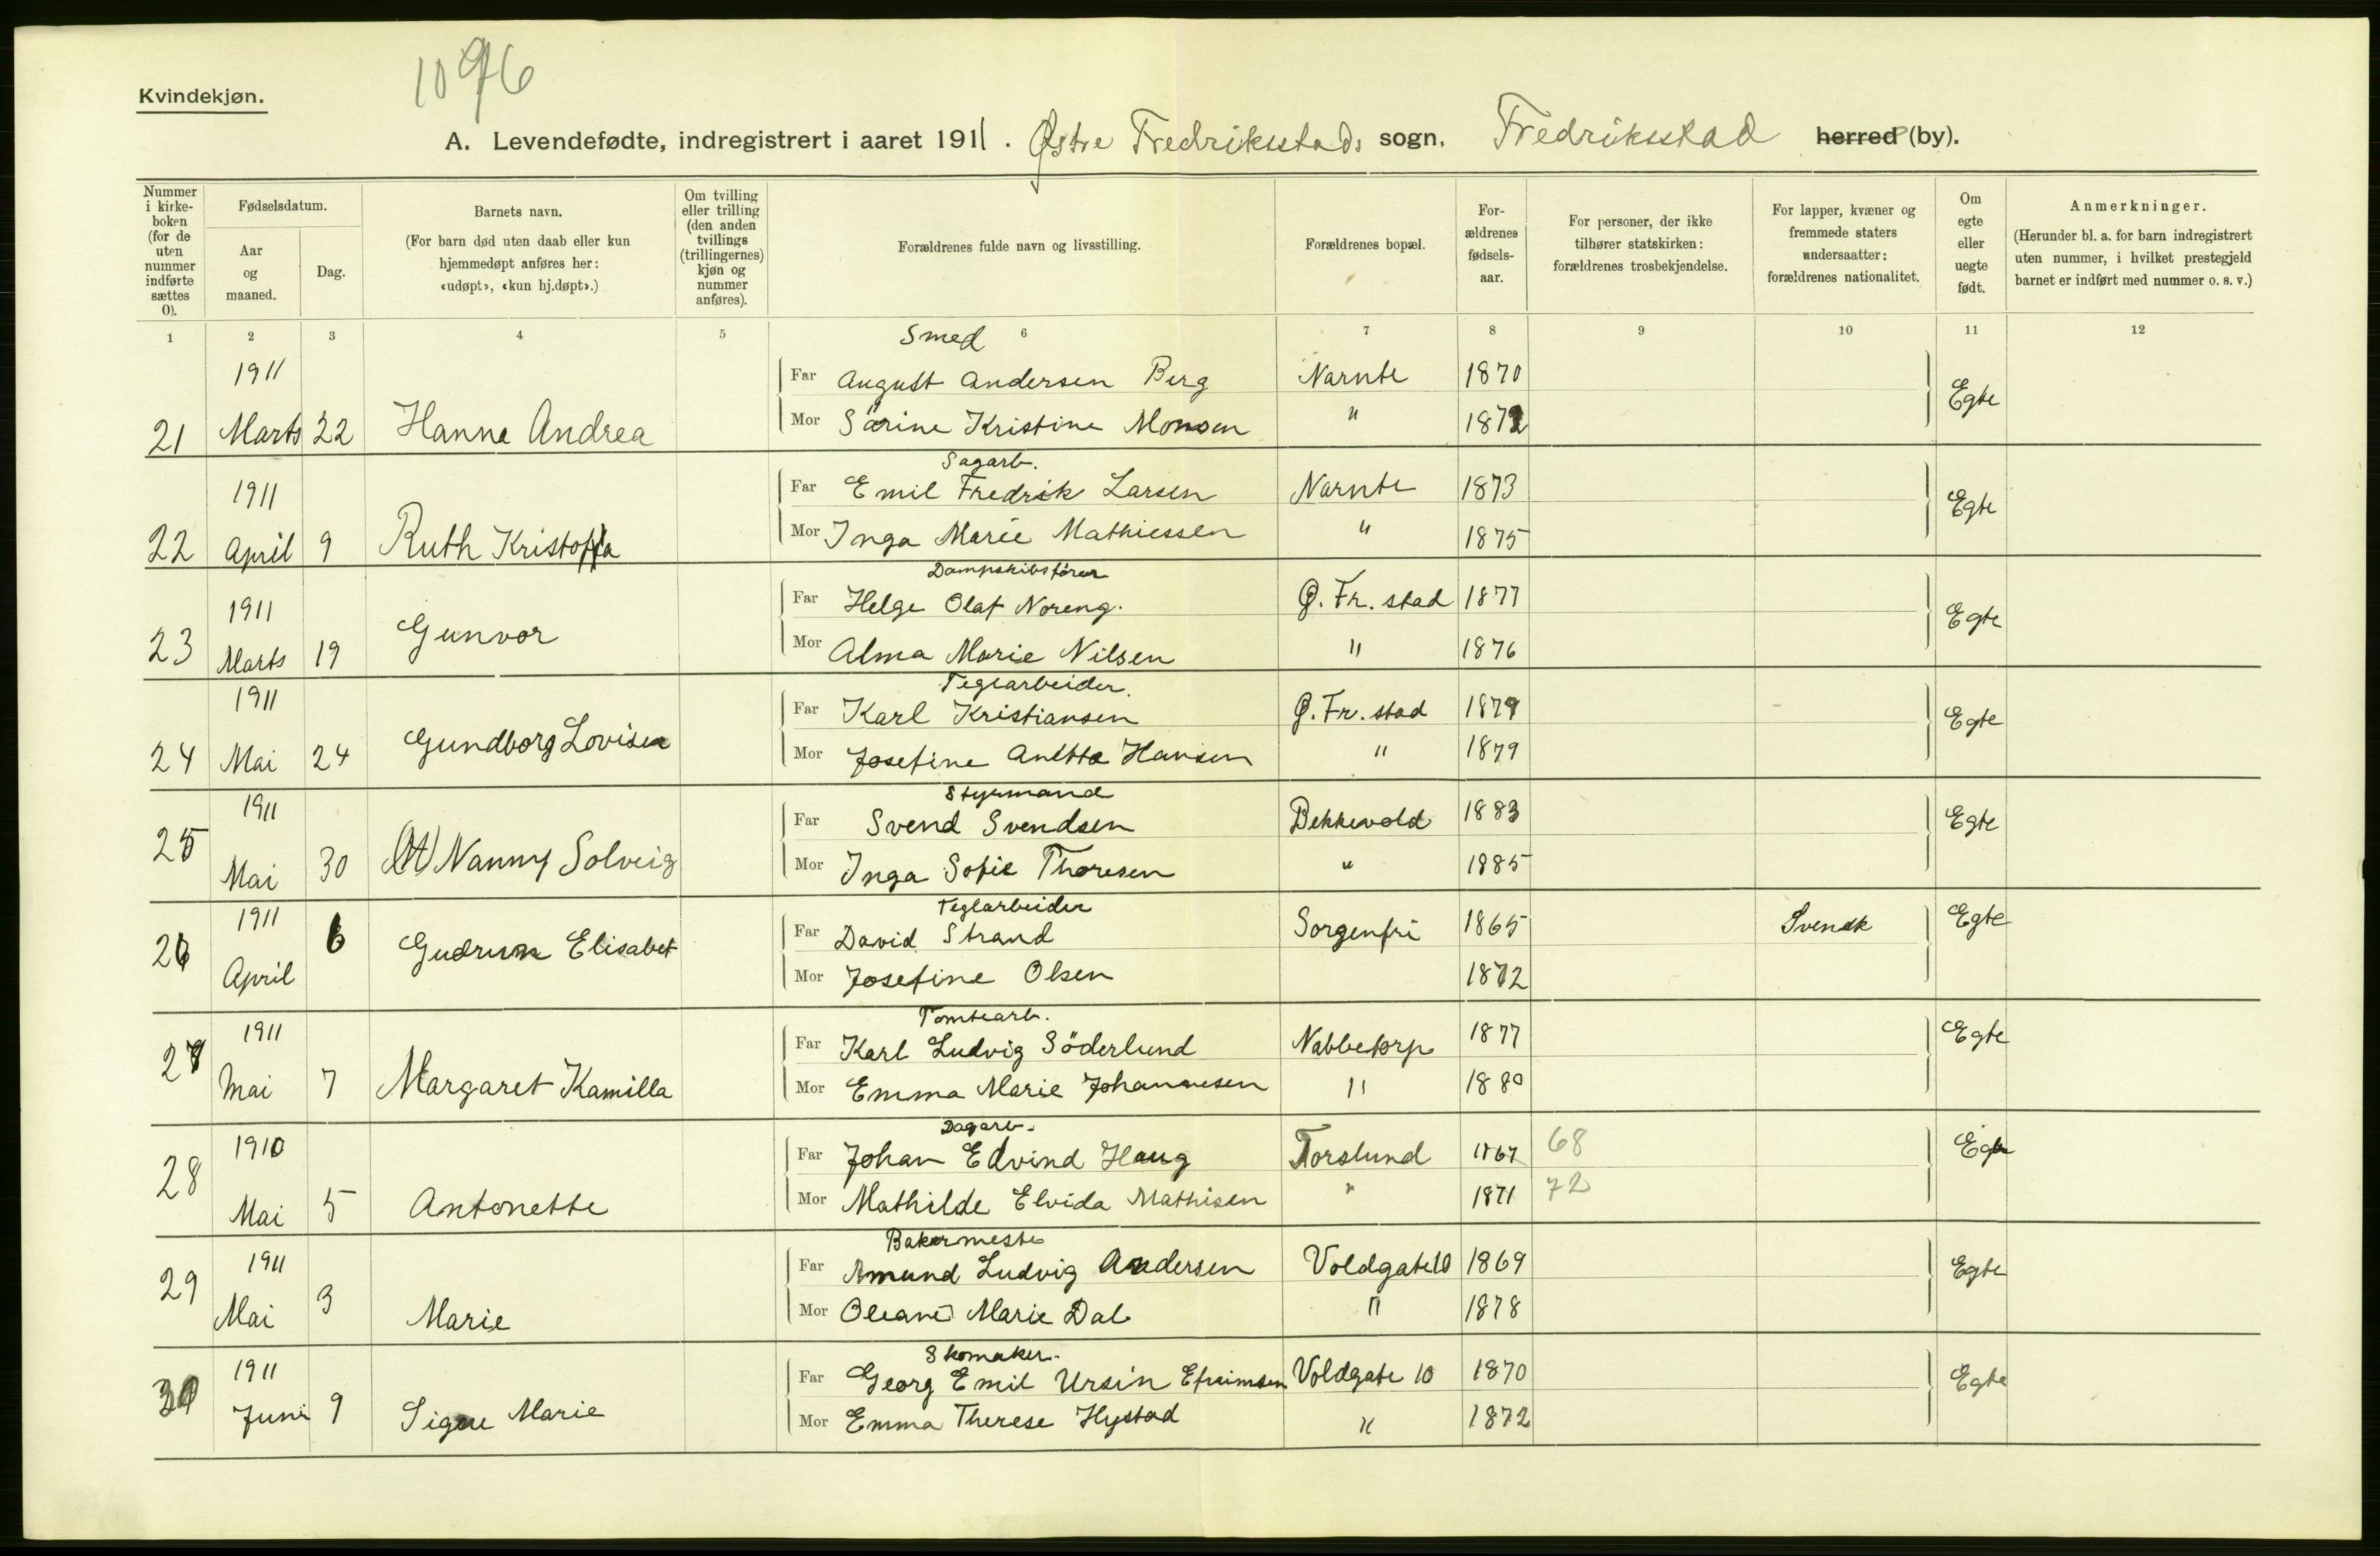 1096
Kvindekjøn.
A. Levendefødte, indregistrert i aaret 1911. Østre Fredriksstads sogn, Fredriksstad herred (by).
Nummer i kirkeboken (for de uten nummer indførte sættes 0).
Fødselsdatum.
Aar og maaned.
Dag.
Barnets navn.
(For barn død uten daab eller kun hjemmedøpt anføres her: «udøpt», «kun hj.døpt».)
Om tvilling eller trilling (den anden tvillings (trillingernes) kjøn og nummer anføres).
Forældrenes fulde navn og livsstilling.
Forældrenes bopæl.
Forældrenes fødselsaar.
For personer, der ikke tilhører statskirken: forældrenes trosbekjendelse.
For lapper, kvæner og fremmede staters undersaatter: forældrenes nationalitet.
Om egte eller uegte født.
Anmerkninger.
(Herunder bl. a. for barn indregistrert uten nummer, i hvilket prestegjeld barnet er indført med nummer o. s. v.)
1 2 3 4 5 6 7 8 9 10 11 12
Smed
1911 Far August Andersen Berg Narnte 1870 Egte
21 Marts 22 Hanna Andrea Mor Särine Kristine Monsen " 1872
Sagarb.
1911 Far Emil Fredrik Larsen Narnte 1873 Egte
22 April 9 Ruth Mor Inga Marie Mathiessen " 1875
Dampskibsfører
1911 Far Helge Olaf Noreng. Ø. Fr. stad 1877 Egte
23 Marts 19 Gunvor Mor Alma Marie Nilsen " 1876
Teglarbeider.
1911 Far Karl Kristiansen Ø. Fr. stad 1879 Egte
24 Mai 24 Gundborg Lovise Mor Josefine Anette Hansen " 1879
Styrmand
1911 Far Svend Svendsen Bekkevold 1883 Egte
25 Mai 30 Nanny Solveig Mor Inga Sofie Thoresen " 1885
Teglarbeider
1911 Far David Strand Sorgenfri 1865 Svensk Egte
26 April 6 Gudrun Elisabet Mor Josefine Olsen 1872
Tomtearb.
1911 Far Karl Ludvig Söderlund Nabbetorp 1877 Egte
27 Mai 7 Margaret Kamilla Mor Emma Marie Johannesen " 1880
Dagarb.
1910 Far Johan Edvind Haug Torslund 1867 68 Egte
28 Mai 5 Antonette Mor Mathilde Elvida Mathisen " 1871 72
Bakermester
1911 Far Amund Ludvig Andersen Voldgate 10 1869 Egte
29 Mai 3 Marie Mor Oleane Marie Dal " 1878
Skomaker.
1911 Far Georg Emil Ursin Efraimsen Voldgate 10 1870 Egte
30 Juni 9 Signe Marie Mor Emma Therese Hystad " 1872